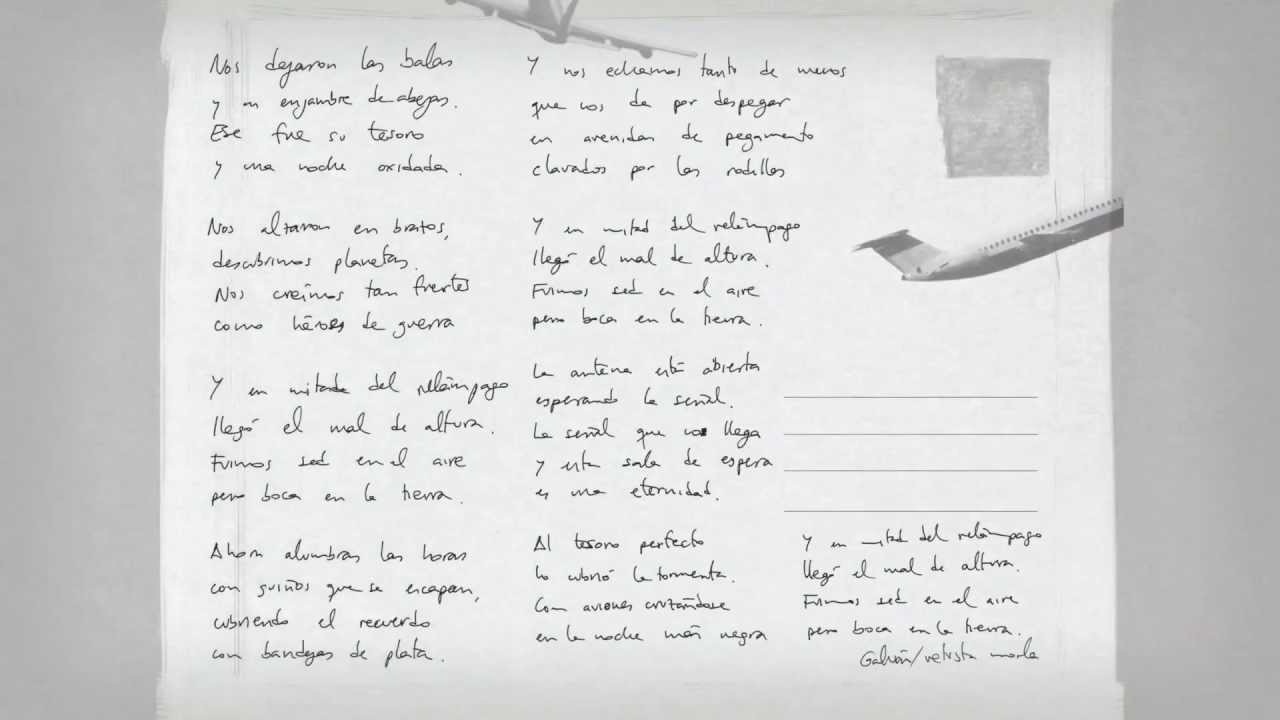 Nos dejaron las balas
y un enjambre de abejas.
Ese fue su tesoro
y una noche oxidada.
Nos altaron en bratos,
descubrimos planetas.
Nos creímos tan fuertes
como héroes de guerra
Y en mitad del relámpago
llegó el mal de altura.
Fuimos sed en el aire
pero boca en la tierra.
Ahora alumbras las horas
con guiños que se escapan,
cubriendo el recuerdo
con bandejas de plata.
Y nos echamos tanto de menos
que nos da por despegar
en avenidas de pegamento
clavados por las rodillas
Y en mitad del relámpago
llegó el mal de altura.
Fuimos sed en el aire
pero boca en la tierra.
La antena está abierta
esperando la señal.
La señal que no llega
y esta sala de espera
es una eternidad.
Al tesoro perfecto
lo cubrió la tormenta.
Con aviones cruzándose
en la noche más negra
Y en mitad del relámpago
llegó el mal de altura.
Fuimos sed en el aire
pero boca en la tierra.
Galván/vetusta morla